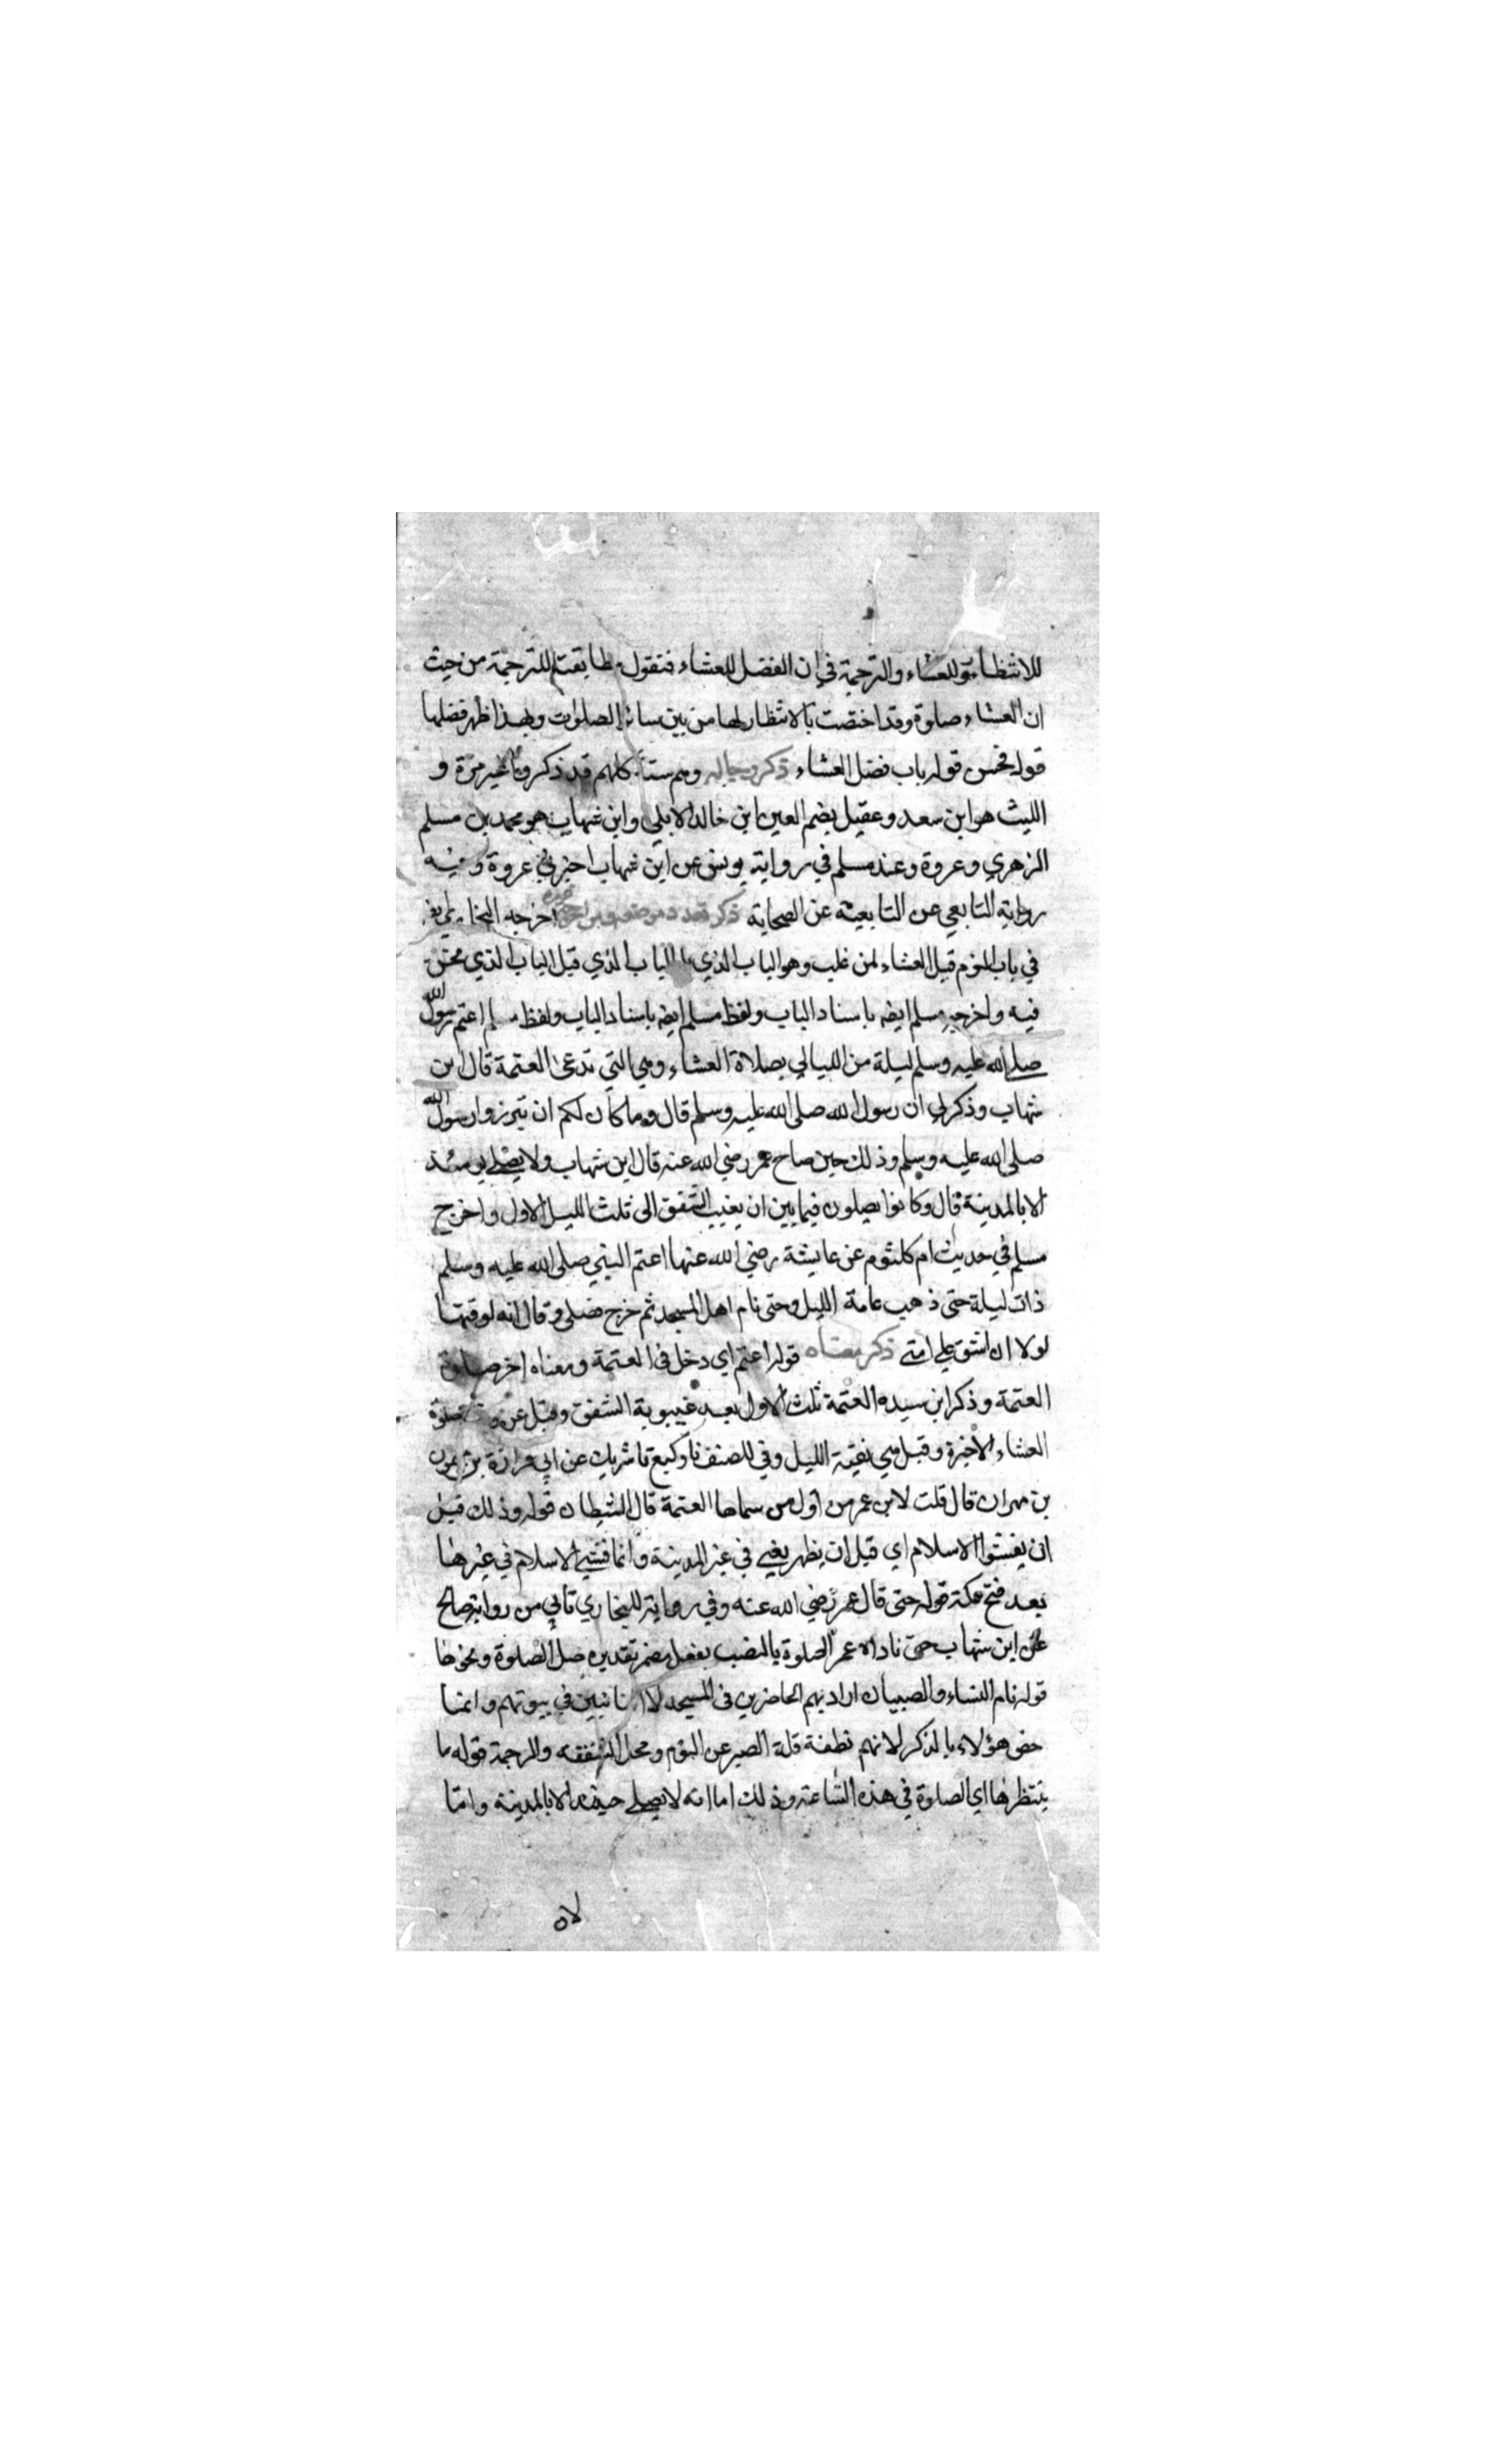 للانتظار للعشاء والترجمة في ان الفضل للعشاء فنقول مطابقته للترجمة من حيث
ان العشاء صلوة وقد اختصت بالانتظار لها من بين سائر الصلوات وبهذا ظهر فضلها
قوله فحسن قوله باب فضل العشاء ذكر رجاله وهم ستة كلهم قد ذكروا غير مرة و
الليث هو ابن سعد وعقيل بضم العين ابن خالد الايلي وابن شهاب هو محمد بن مسلم
الزهري وعروة وعند مسلم في رواية يونس عن ابن شهاب اخبرني عروة وفيه
رواية التابعي عن التابعي عن الصحابة ذكر تعدد موضعه ومن اخرجه غيره اخرجه البخاري ايضا
في باب النوم قبل العشاء لمن غلب وهو الباب الذي الباب الذي قبل الباب الذي نحن
فيه واخرجه مسلم ايضه باسناد الباب ولفظ مسلم ايضه باسناد الباب ولفظ مسلم اعتم رسول الله
صلى الله عليه وسلم ليلة من الليالي بصلاة العشاء وهي التي تدعى العتمة قال ابن
شهاب وذكر لي ان رسول الله صلى الله عليه وسلم قال وما كان لكم ان تبرزوا رسول الله
صلى الله عليه وسلم وذلك حين صاح عمر رضي الله عنه قال ابن شهاب ولا يصلي يومئذ
الا بالمدينة قال وكانوا يصلون فيما بين ان يغيب الشفق الى ثلث الليل الاول واخرج
مسلم في حديث ام كلثوم عن عايشة رضي الله عنها اعتم النبي صلى الله عليه وسلم
ذات ليلة حتى ذهب عامة الليل وحتى نام اهل المسجد ثم خرج فصلى وقال انه لوقتها
لولا ان اشق على امتي ذكر معناه قوله اعتم اي دخل في العتمة ومعناه اخر صلوة
العتمة وذكر ابن سيده العتمة ثلث الاول بعد غيبوبة الشفق وقيل عن وقت صلوة
العشاء الاخيرة وقيل هي بقية الليل وفي المصنف نا وكيع نا شريك عن ابي فزارة عن ميمون
بن مهران قال قلت لابن عمر من اول من سماها العتمة قال الشيطان قوله وذلك قبل
ان يفشوا الاسلام اي قبل ان يظهر يعني في غير المدينة وانما فشى الاسلام في غيرها
بعد فتح مكة قوله حتى قال عمر رضي الله عنه وفي رواية للبخاري تاتي من رواية صالح
عن ابن شهاب حتى ناداه عمر الصلوة بالنصب بفعل مضمر تقديره صل الصلوة ونحوها
قوله نام النساء والصبيان اراد بهم الحاضرين في المسجد لا النائبين في بيوتهم وانما
خص هؤلاء بالذكر لانهم نظفنة قلة الصبر عن النوم ومحل الشفقة والرحمة قوله ما
ينتظرها اي الصلوة في هذه الساعة وذلك اما انه لا يصلي حينئذ الا بالمدينة واما
لان